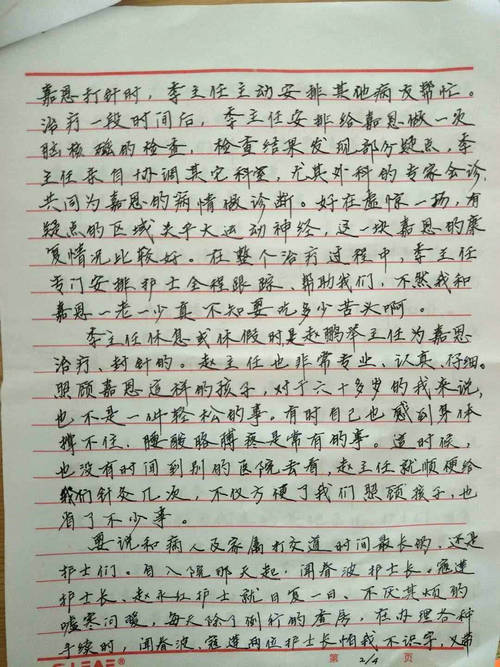 嘉恩打针时，李主任主动安排其他病友帮忙。
治疗一段时间后，李主任安排给嘉恩做一次
脑核磁的检查，检查结果发现部分疑点，李
主任亲自协调其它科室，尤其外科的专家会诊，
共同为嘉恩的病情做诊断。好在虚惊一场，有
疑点的区域关乎大运动神经，这一块嘉恩的康
复情况比较好。在整个治疗过程中，李主任
专门安排护士全程跟踪、帮助我们，不然我和
嘉恩一老一少真不知要吃多少苦头啊。
李主任休息或休假时是赵鹏举主任为嘉恩
治疗、封针的。赵主任也非常专业、认真、仔细。
照顾嘉恩这样的孩子，对于六十多岁的我来说，
也不是一件轻松的事。有时自己也感到身体
撑不住，腰酸胳膊疼是常有的事。这时候，
也没有时间到别的医院去看，赵主任就顺便给
我们针灸几次，不仅方便了我们照顾孩子，也
省了不少事。
要说和病人及家属打交道时间最长的，还是
护士们。自入院那天起，闻春波护士长、寇莲
护士长、赵永红护士就日复一日、不厌其烦的
嘘寒问暖，每天除了例行的查房，在办理各种
手续时，闻春波、寇莲两位护士长怕我不识字，又带
第 2/4 页